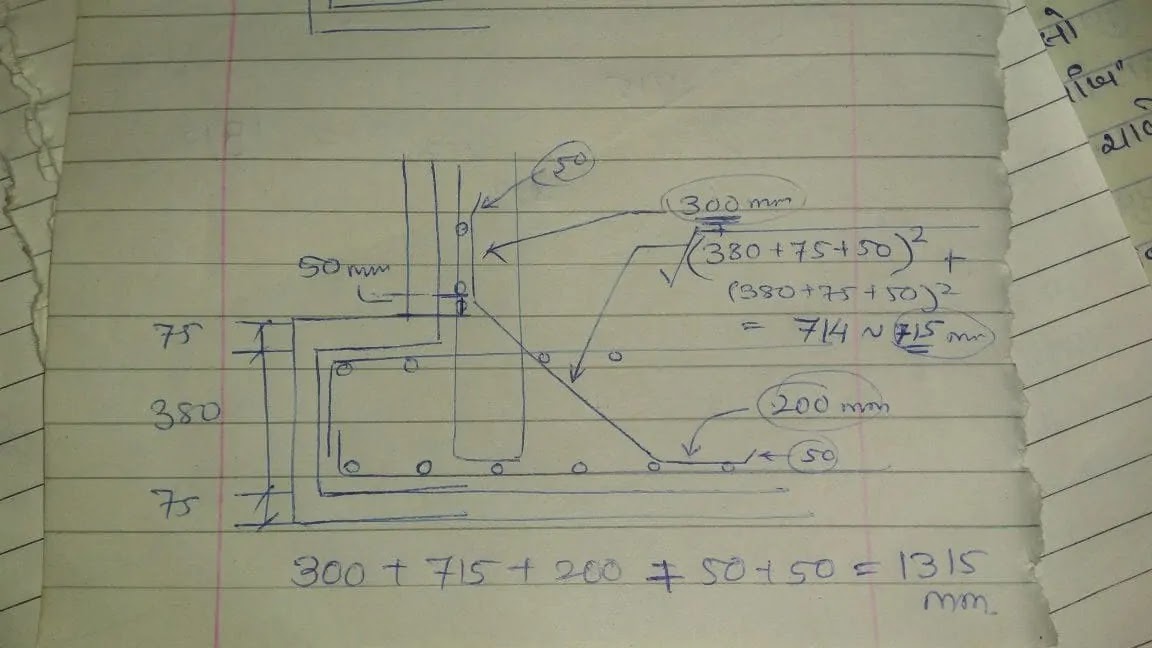 50
300 mm
√(380+75+50)² +
(380+75+50)²
= 714 ~ 715 mm
50 mm
75
380
200 mm
50
75
300 + 715 + 200 + 50 + 50 = 1315
mm.